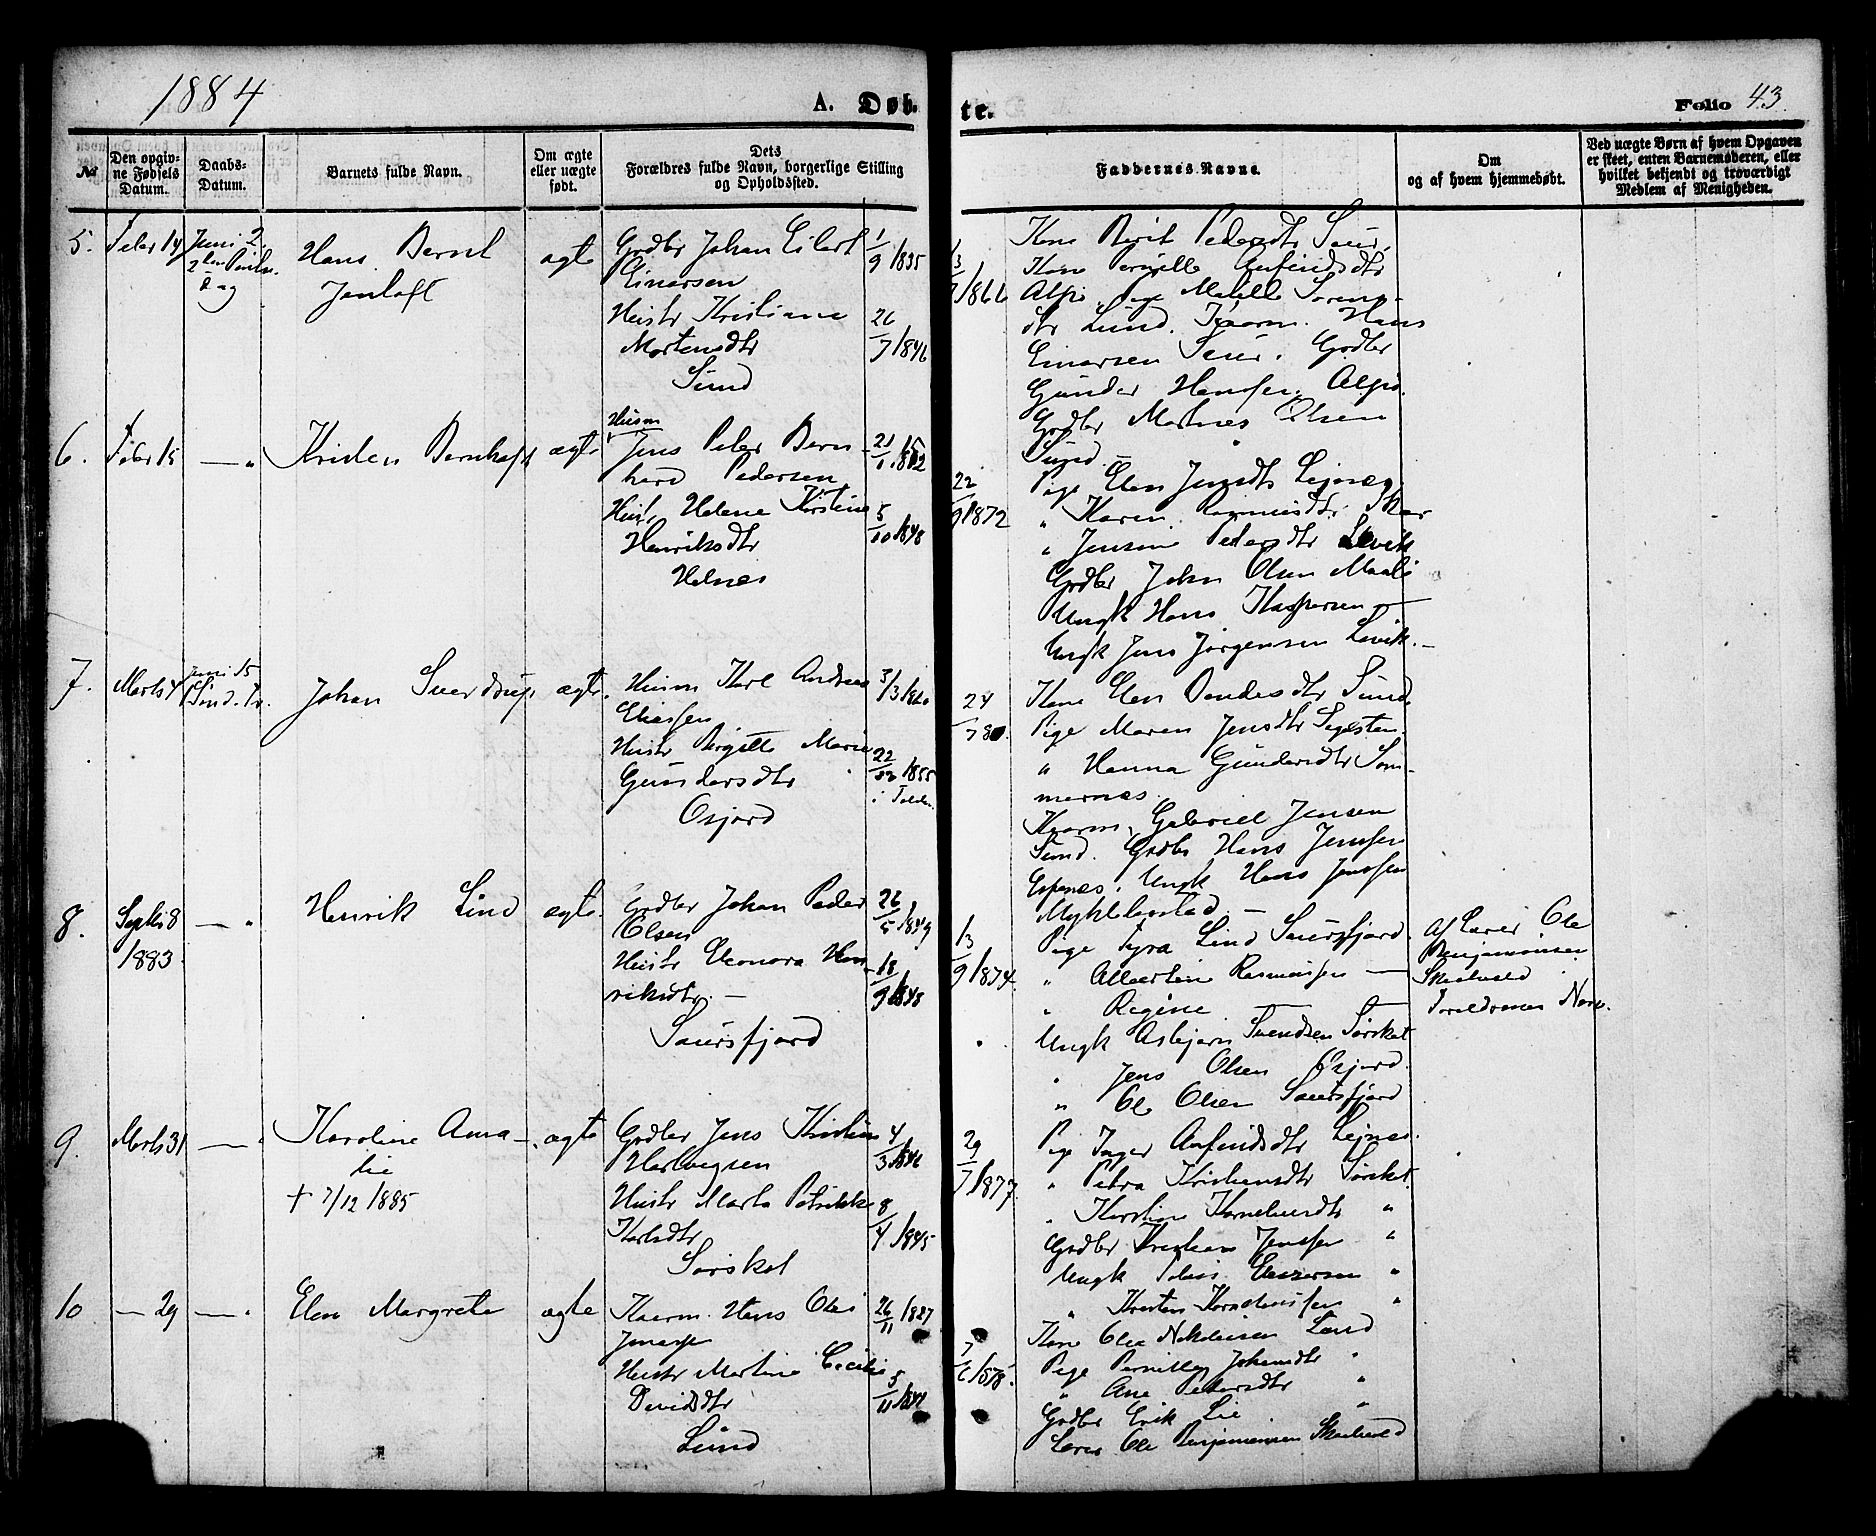 1884
A. Døb-
te.
Folio 43.
No
Den opgiv-
ne Fødsels
Datum.
Daabs-
Datum.
Barnets fulde Navn.
Om ægte
eller uægte
født.
Dets
Forældres fulde Navn, borgerlige Stilling
og Opholdssted.
Faddernes Navne.
Om
og af hvem hjemmedøbt.
Ved uægte Børn af hvem Opgaven
er skeet, enten Barnemoderen, eller
hvilket bekjendt og troværdigt
Medlem af Menigheden.
5.
Febr 14
Juni 2.
2den Pintse
Dag
Hans Bernt
Jentoft
ægte
Grdbr Johan Eilert
Einarsen
Hustr Kristiane
Mortensdtr
Sund
1/9 1835
26/7 1846
3/7 1866
Kone Berit Pedersdtr Saur,
Kone Pernille Anfindsdtr
Pige Sorens-
dtr Lund. Kaarm. Hans
Einarsen Saur. Grdbr
Gunder Hansen
Grdbr Martines Olsen
Sund.
6.
Febr 15
— "
Kristen Bernhoft
ægte
Husm
Jens Peder Bern-
hard Pedersen
Hust. Helene Kirstine
Henriksdtr
Helnes
5/10 1848
22/9 1872
Pige Elen Jensdtr Leines
" Karen Rasmusdtr
" Jensine Pedersdtr Løvik
Grdbr John Olsen
Ungk Hans Kaspersen —
Ungk Jens Jørgensen Løvik. —
7.
Marts 4
Juni 15
1 Sönd. Tr.
Johan Sverdrup
ægte.
Husm Karl Andreas
Eliassen
Hustr Birgitte Marie
Gundersdtr
Osjord
3/3 1860
22/12 1855
24/7 80.
Kone Elen Sund.
Pige Maren Jensdtr Segesten.
" Hanna Gundersdtr Som-
mernes.
Kaarm. Gabriel Jensen
Sund. Grdbr Hans Jensen
Ungk Hans Jensen
Myklebostad —
8.
Septbr 8
1883
— "
Henrik Lind
ægte.
Grdbr Johan Peder
Olsen
Hustr Eleonora Hen-
riksdtr. —
Saursfjord
26/5 1849
18/9 1848
13/9 1874.
Pige Tyra Lind Saursfjord.
" Albertine Rasmussen —
" Regine —
Ungk Asbjørn Svendsen Sørskot
" Jens Olsen Osjord.
" Ole Olsen Saursfjord
Af Lærer Ole
Benjaminsen
Skalvold
i
Forældrenes Navn.
9.
Marts 31
— "
Karoline Ama-
lie
+ 7/12 1885
ægte
Grdbr Jens Kristian
Hartvigsen
Hustr Marta Patrikke
Karlsdtr
Sørskot
4/3 1846
8/4 1845
29/7 1877.
Pige Inger Anfindsdtr Leines.
" Petra Kristensdtr Sørskot
" Karoline Korneliusdtr "
Grdbr Kristian Jensen "
Ungk Tobias "
" Kristen Korneliussen "
10
— 29
— "
Elen Margrete
ægte
Kaarm. Hans Olai
Hustr Martine Cecilie
Davidsdtr
Lund
26/11 1827
5/11 1842
Kone Olea Nikolaisen Lund
Pige Pernille Johansdtr "
" Ane Pedersdtr "
Grdbr Erik Lie "
Lærer Ole Benjaminsen Skalvold